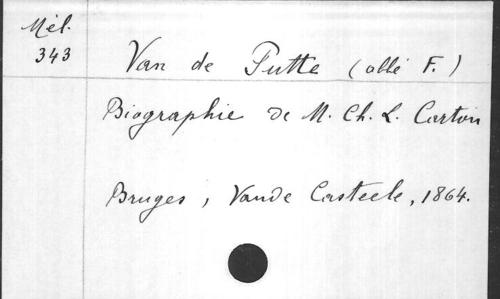 Mél.
343
Van de Putte (abbé F.)
Biographie de M. Ch. L. Carton
Bruges, Vande Casteele, 1864.